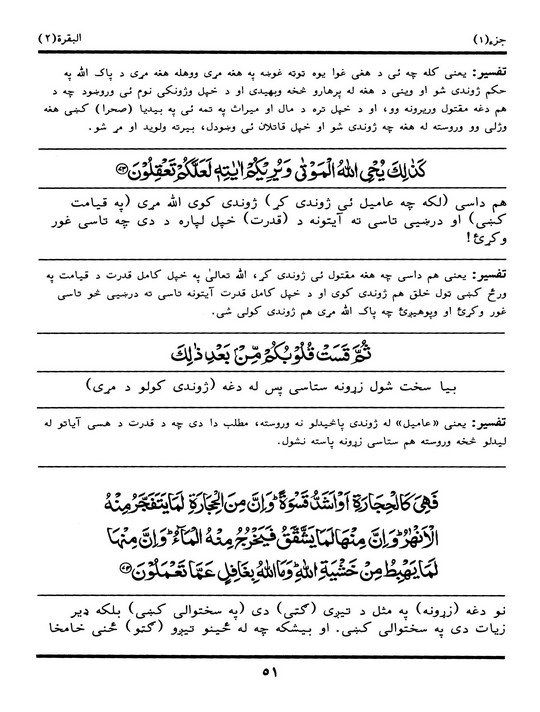 جزء(۱)
البقرة(۲)
تفسیر: یعنی کله چه ئی د هغی غوا یوه توته غوښه په هغه مړی ووهله هغه مړی د پاک الله په
حکم ژوندی شو او وینی د هغه له پرهارو څخه وبهیدی او د خپل وژونکی نوم ئی وروښود چه د
هم دغه مقتول وریرونه وو، او د خپل تره د مال او میراث په تمه ئی په بیدیا (صحرا) کښی هغه
وژلی وو وروسته له هغه چه ژوندی شو او خپل قاتلان ئی وښودل، بیرته ولوید او مړ شو.
كَذٰلِكَ يُحْيِ اللّٰهُ الْمَوْتٰى وَيُرِيْكُمْ اٰيٰتِهٖ لَعَلَّكُمْ تَعْقِلُوْنَ ﴿۷۳﴾
هم داسی (لکه چه عامیل ئی ژوندی کړ) ژوندی کوی الله مړی (په قیامت
کښی) او درښیی تاسی ته آیتونه د (قدرت) خپل لپاره د دی چه تاسی غور
وکړئ!
تفسیر: یعنی هم داسی چه هغه مقتول ئی ژوندی کړ، الله تعالیٰ په خپل کامل قدرت د قیامت په
ورځ کښی ټول خلق هم ژوندی کوی او د خپل کامل قدرت آیتونه تاسی ته درښیی څو تاسی
غور وکړئ او وپوهیږئ چه پاک الله مړی هم ژوندی کولی شی.
ثُمَّ قَسَتْ قُلُوْبُكُمْ مِّنْۢ بَعْدِ ذٰلِكَ
بیا سخت شول زړونه ستاسی پس له دغه (ژوندی کولو د مړی)
تفسیر: یعنی «عامیل» له ژوندی پاڅیدلو نه وروسته، مطلب دا دی چه د قدرت د هسی آیاتو له
لیدلو څخه وروسته هم ستاسی زړونه پاسته نشول.
فَهِيَ كَالْحِجَارَةِ اَوْ اَشَدُّ قَسْوَةً ؕ وَاِنَّ مِنَ الْحِجَارَةِ لَمَا يَتَفَجَّرُ مِنْهُ
الْاَنْهٰرُ ؕ وَاِنَّ مِنْهَا لَمَا يَشَّقَّقُ فَيَخْرُجُ مِنْهُ الْمَآءُ ؕ وَاِنَّ مِنْهَا
لَمَا يَهْبِطُ مِنْ خَشْيَةِ اللّٰهِ ؕ وَمَا اللّٰهُ بِغَافِلٍ عَمَّا تَعْمَلُوْنَ ﴿۷۴﴾
نو دغه (زړونه) په مثل د تیږی (ګټی) دی (په سختوالی کښی) بلکه ډیر
زیات دی په سختوالی کښی. او بیشکه چه له ځینو تیږو (ګټو) ځنی خامخا
۵۱